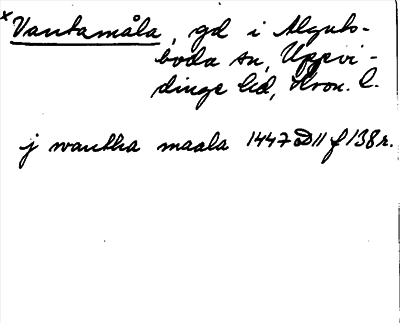 x Vantamåla, gd i Alguts-
boda sn, Uppvi-
dinge hd, Kron. l.
j wantha maala 1447 D 11 f 138 r.